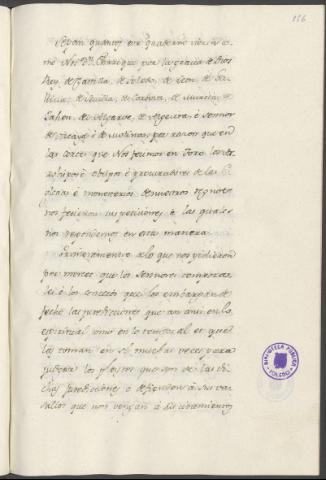 156
Sepan quantos este quaderno vieren co-
mo Nos Dn. Enrrique por la gracia de Dios
Rey de Castilla, de Toledo, de Leon, de Ga-
llicia, de Sevilla, de Cordova, de Murcia, de
Jahen, del Algarve, de Algecira, é Sennor
de Vizcaya é de Molina; por razon que en
las cortes que Nos fecimos en Toro los
é obispos é procuradores de las
é monesterios de nuestros Regnos
nos fecieron sus peticiones, á las quales
nos respondemos en esta manera.
Primeramente a lo que nos pidieron
por merced que los Sennores
é los concejos que les embargan de
fecho las jurediciones que an ansi en lo
espiritual como en lo temporal et que
les toman en si muchas veces para
judgar los pleytos que son de las di-
chas jurediciones é defienden á sus va-
sallos que non vengan á sus
BIBLIOTECA PUBLICA
TOLEDO